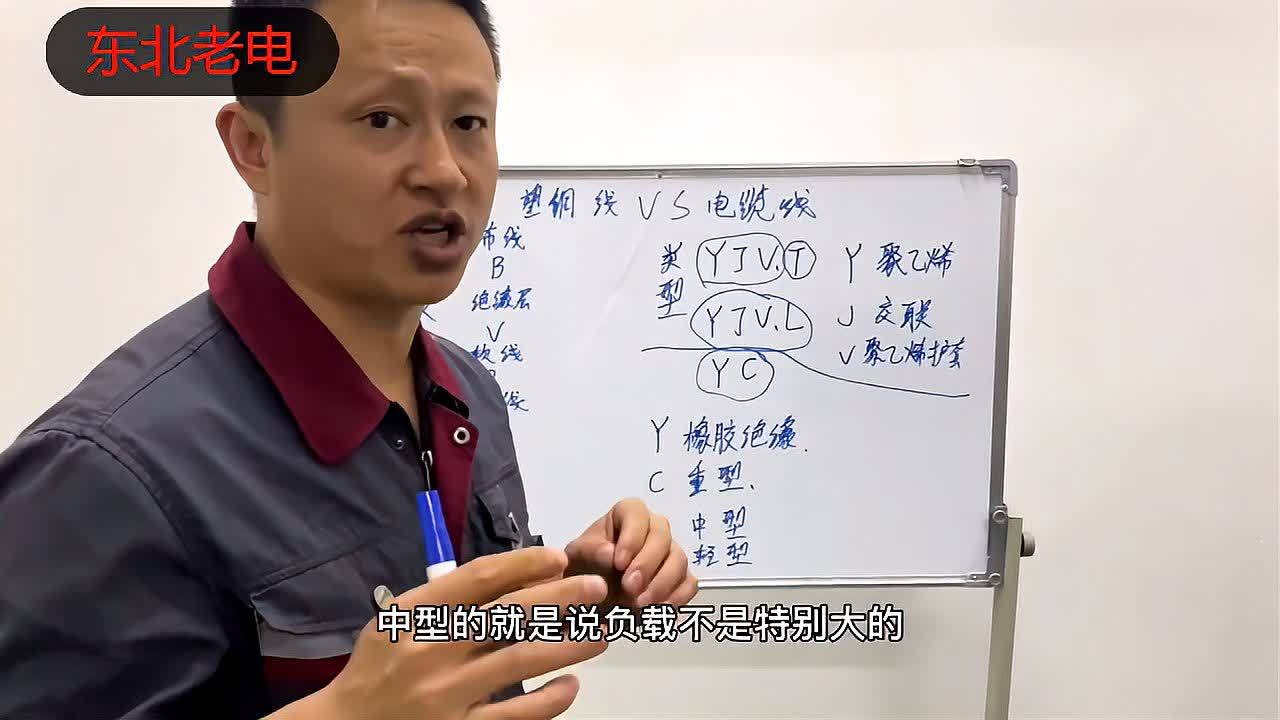 东北老电
塑铜线 VS 电缆线
布线
B
绝缘层
V
软线
线
类型
YJV.T
YJV.L
YC
Y 聚乙烯
J 交联
V 聚乙烯护套
Y 橡胶绝缘.
C 重型.
中型
轻型
中型的就是说负载不是特别大的